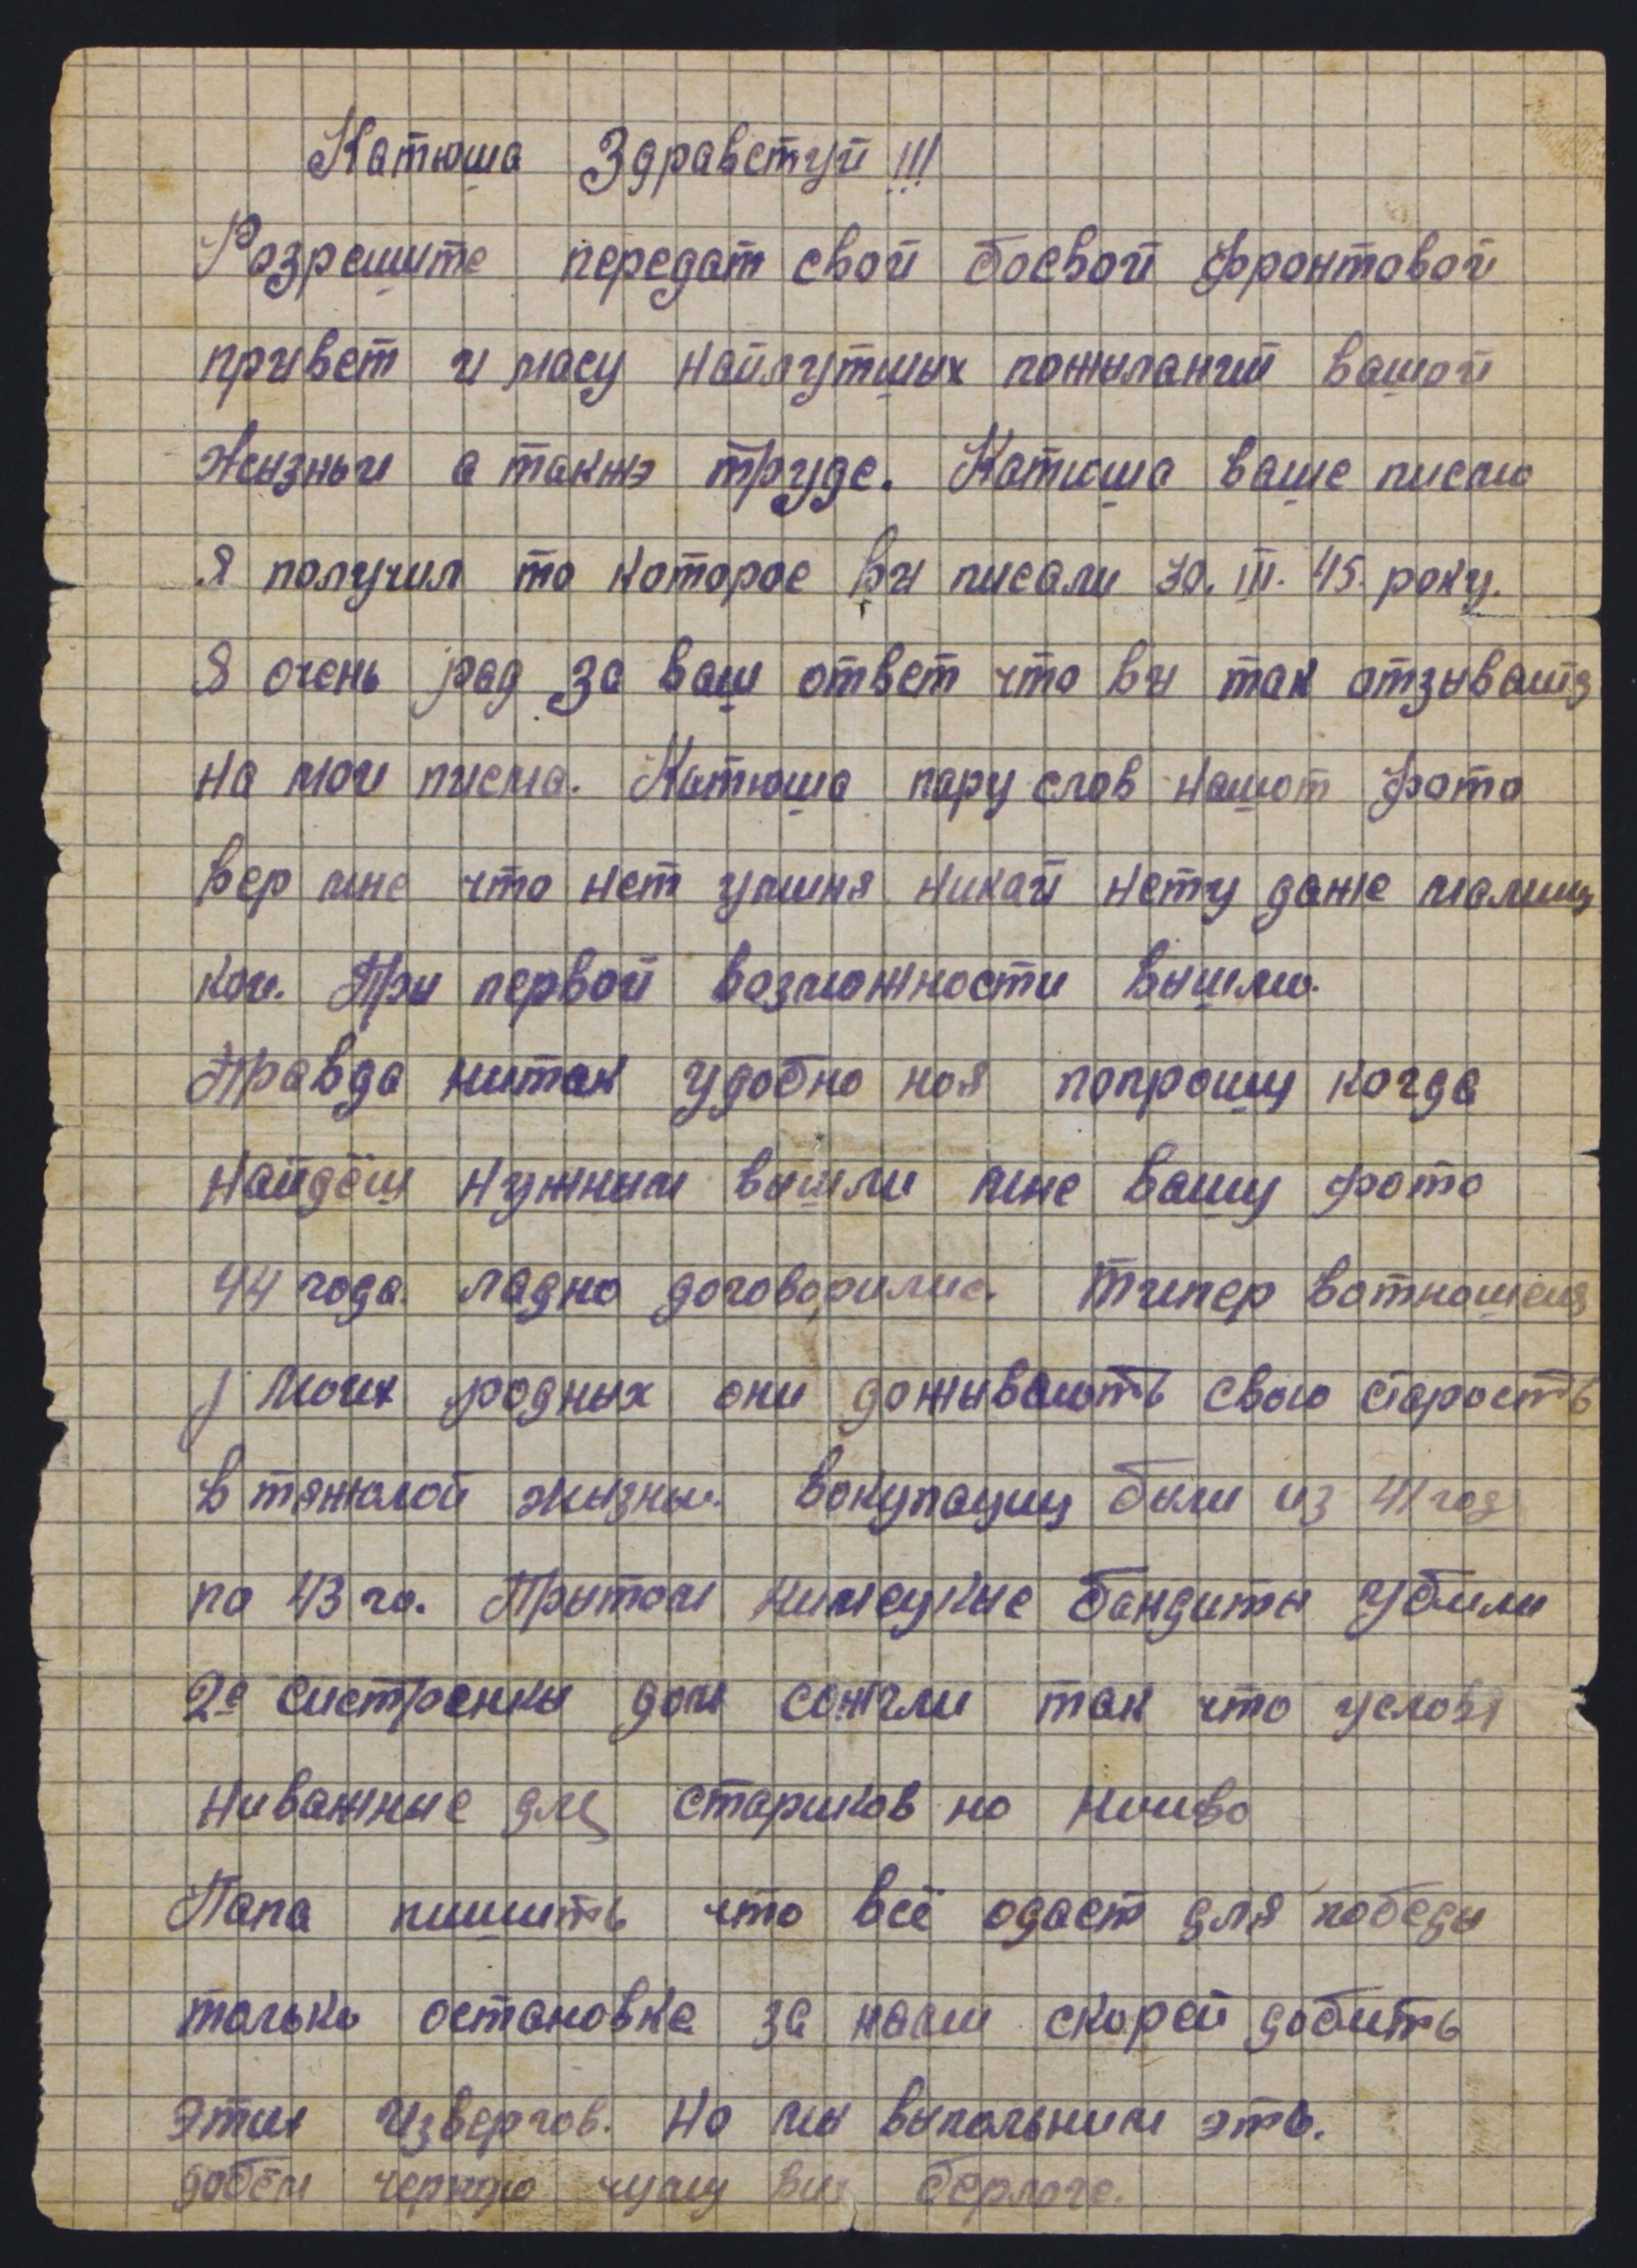 Катюша Здравстуй!!!
Розрешите передат свой боевой фронтовой
привет и масу найлутшых пожыланий вашой
жызныи а такжэ труде. Катюша ваше писмо
я получил то которое вы писали 30. III. 45. року.
Я очень рад за ваш ответ что вы так отзываитэ
на мои писма. Катюша пару слов нашот фото
вер мне что нет уминя никай нету даже малиц
кой. При первой возможности вышлю.
Правда нитак удобно ноя попрошу когда
найдёш нужным вышли мне вашу фото
44 года. ладно договорилис. типер вотношение
моих родных они дожывають свою старость
в тяжолой жызны. вокупацыи были из 41 года
по 43 го. Притом нимецкые бандиты убили
2е систренкы дом сожгли так что условя
ниважные для стариков но ничиво
Папа пишить что всё одает для победы
только остановка за нами скорей добить
этих извергов. Но мы выпольним это.
добём черную чуму вии берлоге.